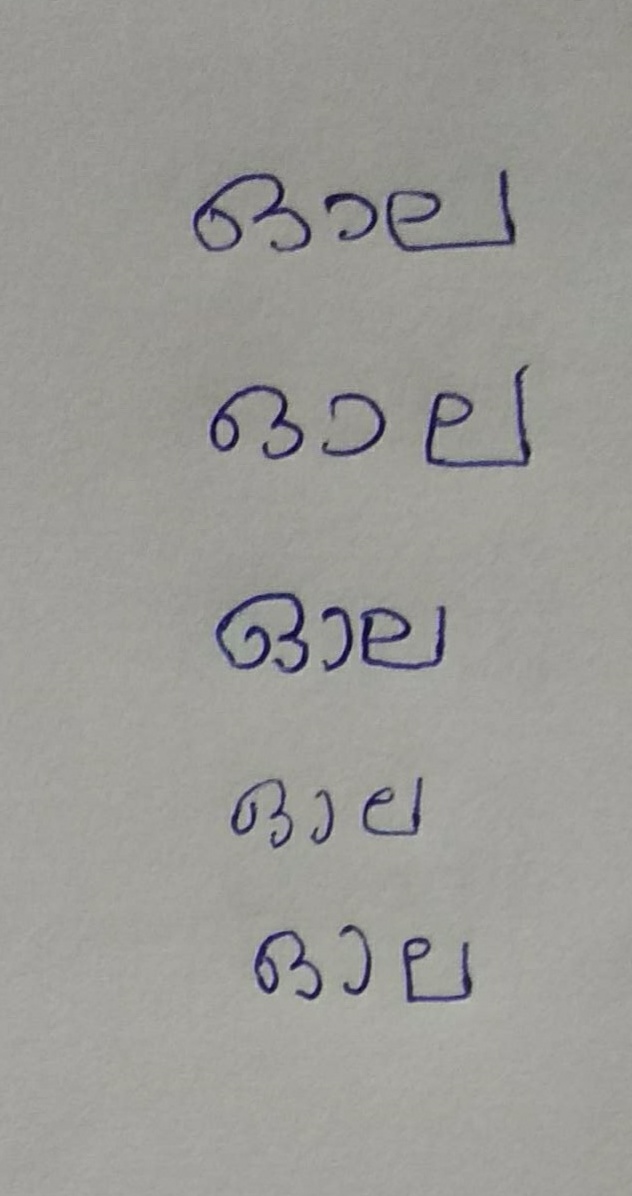 ഓല
ഓല
ഓല
ഓല
ഓല